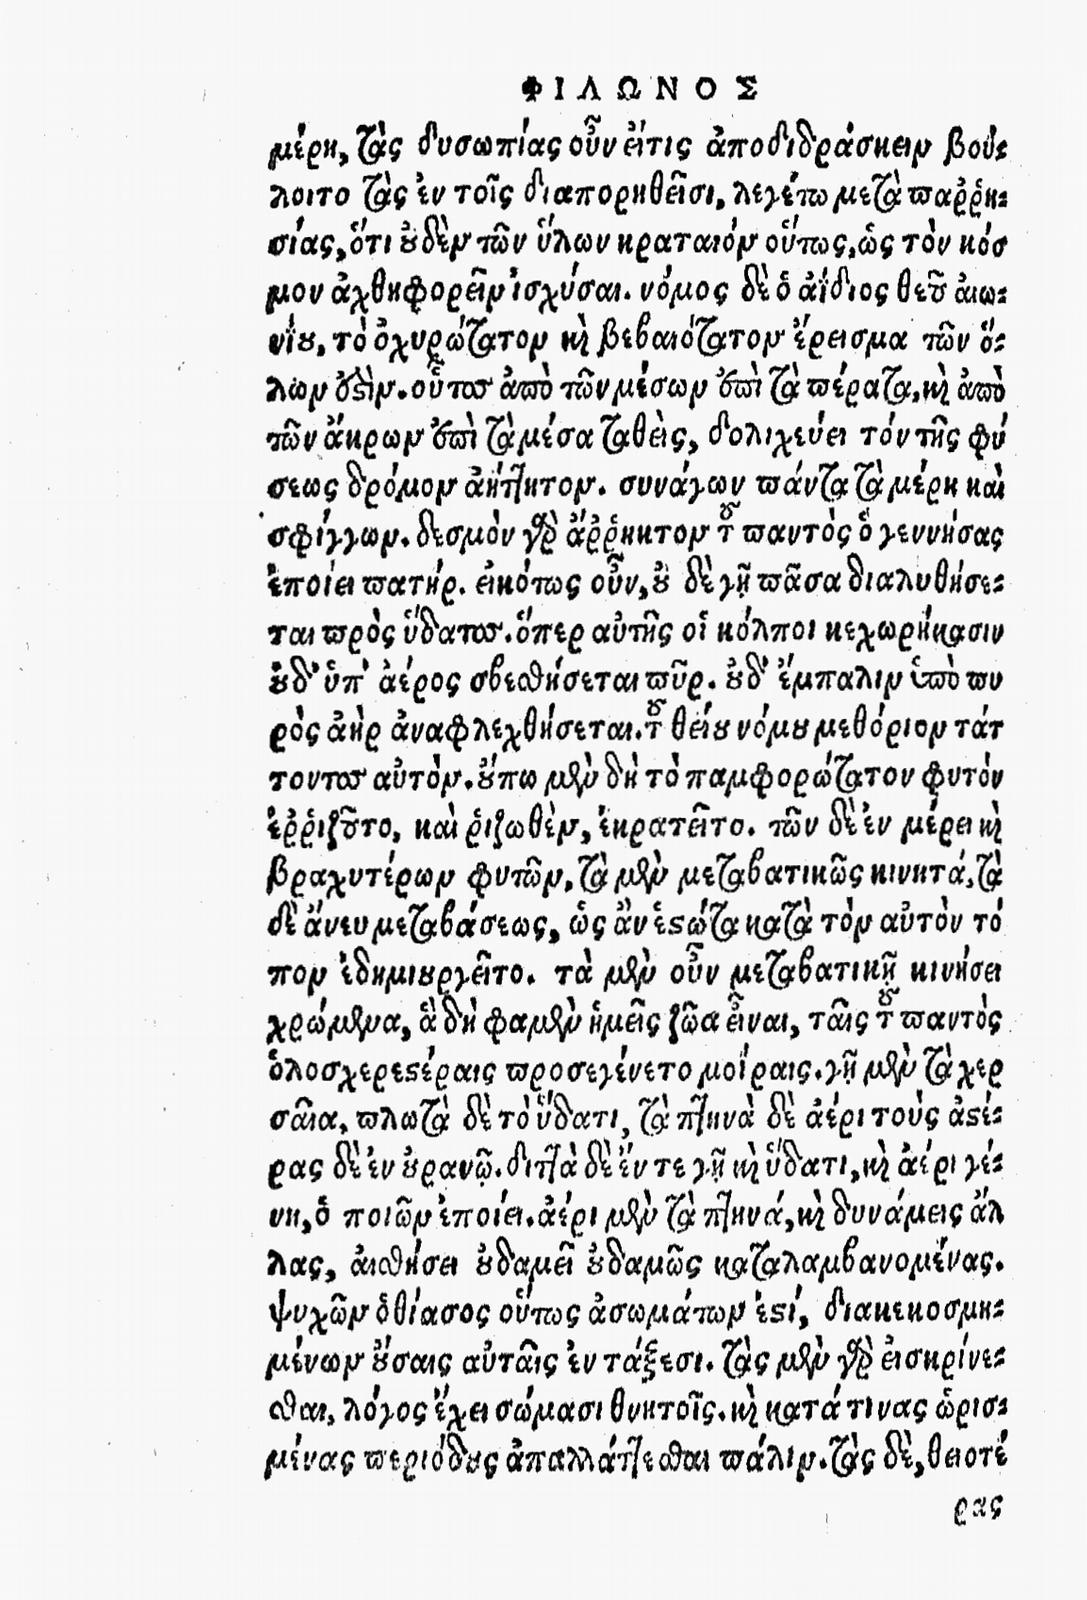 ΦΙΛΩΝΟΣ
μέρη, τὰς δυσωπίας οὖν εἴτις ἀποδιδράσκειν βού-
λοιτο τὰς ἐν τοῖς διαπορηθεῖσι, λεγέτω μετὰ παῤῥη-
σίας, ὅτι οὐδὲν τῶν ὕλων κραταιόν οὕτως, ὡς τὸν κόσ
μον ἀχθηφορεῖν ἰσχύσαι. νόμος δὲ ὁ ἀΐδιος θεοῦ αἰω-
νίου, τὸ ὀχυρώτατον καὶ βεβαιότατον ἔρεισμα τῶν ὅ-
λων ὀστὶν. οὗτος ἀπὸ τῶν μέσων ἐπὶ τὰ πέρατα, καὶ ἀπὸ
τῶν ἄκρων ἐπὶ τὰ μέσα ταθεὶς, δολιχεύει τόν τῆς φύ
σεως δρόμον ἀήττητον. συνάγων πάντα τὰ μέρη καὶ
σφίγγων. δεσμὸν γὰρ ἄῤῥηκτον τοῦ παντὸς ὁ γεννήσας
ἐποίει πατήρ. εἰκότως οὖν, οὐ δὲ γῆ πᾶσα διαλυθήσε-
ται πρὸς ὕδατος. ὅπερ αὐτῆς οἱ κόλποι κεχωρήκασιν
οὐδ' ὑπ' ἀέρος σβεσθήσεται πῦρ. οὐδ' ἔμπαλιν ὑπὸ πυ
ρὸς ἀὴρ ἀναφλεχθήσεται. τοῦ θείου νόμου μεθόριον τάτ
τοντος αὐτὸν. οὕπω μὲν δὴ τὸ παμφορώτατον φυτόν
ἐῤῥιζοῦτο, καὶ ῥιζωθὲν, ἐκρατεῖτο. τῶν δὲ ἐν μέρει καὶ
βραχυτέρων φυτῶν, τὰ μὲν μεταβατικῶς κινητά, τὰ
δὲ ἄνευ μεταβάσεως, ὡς ἂν ἑστῶτα κατὰ τὸν αὐτὸν τό
πον ἐδημιουργεῖτο. τὰ μὲν οὖν μεταβατικῇ κινήσει
χρώμενα, ἃ δή φαμὲν ἡμεῖς ζῶα εἶναι, ταῖς τοῦ παντὸς
ὁλοσχερεστέραις προσεγένετο μοίραις. γῇ μὲν τὰ χερ
σαῖα, πλωτὰ δὲ τὸ ὕδατι, τὰ πτηνὰ δὲ ἀέρι τοὺς ἀστέ-
ρας δὲ ἐν οὐρανῷ. διττὰ δὲ ἔν τε γῇ καὶ ὕδατι, καὶ ἀέρι γέ-
νη, ὁ ποιῶν ἐποίει. ἀέρι μὲν τὰ πτηνά, καὶ δυνάμεις ἄλ
λας, αἰσθήσει οὐδαμεῖ οὐδαμῶς καταλαμβανομένας.
ψυχῶν ὁ θίασος οὗτος ἀσωμάτων ἐστί, διακεκοσμη-
μένων οὔσαις αὐταῖς ἐν τάξεσι. τὰς μὲν γὰρ εἰσκρίνε-
σθαι, λόγος ἔχει σώμασι θνητοῖς. καὶ κατά τινας ὡρισ-
μένας περιόδους ἀπαλλάττεσθαι πάλιν. τὰς δὲ, θειοτέ
ρας